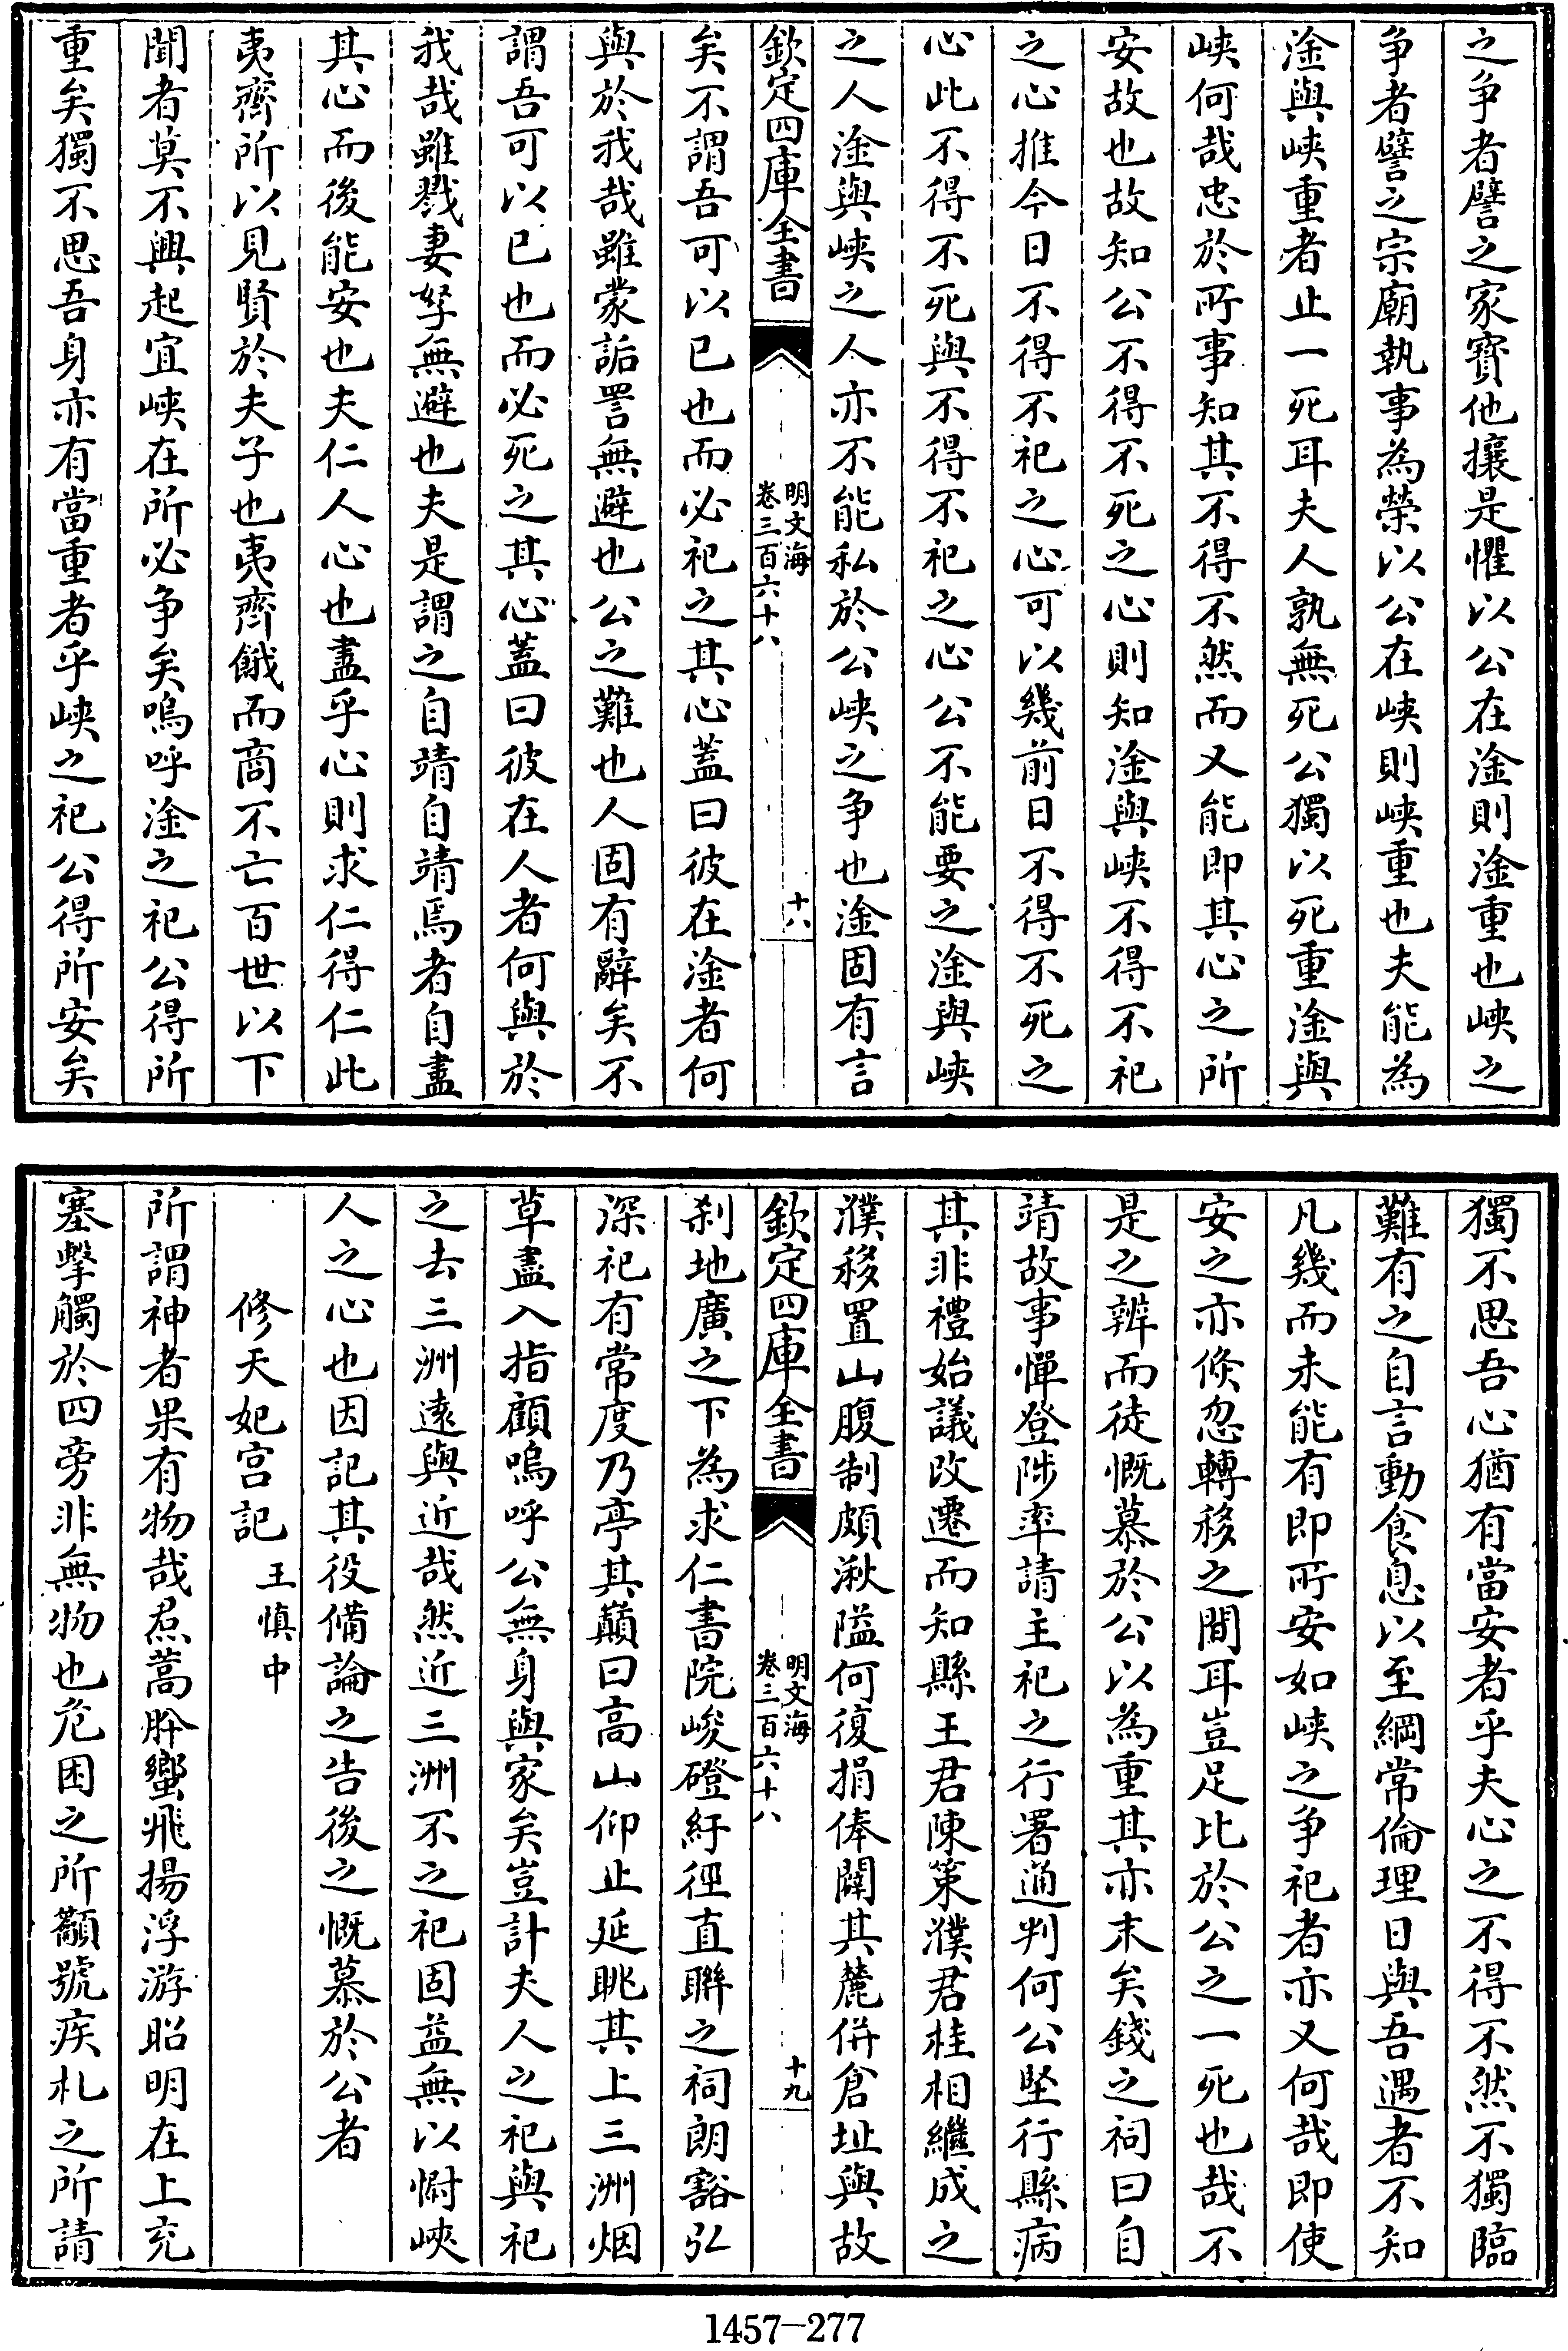 之争者譬之家寶他攘是懼以公在淦則淦重也峽之
争者譬之宗廟執事為榮以公在峽則峽重也夫能為
淦與峽重者止一死耳夫人孰無死公獨以死重淦與
峽何哉忠於所事知其不得不然而又能即其心之所
安故也故知公不得不死之心則知淦與峽不得不祀
之心推今日不得不祀之心可以幾前日不得不死之
心此不得不死與不得不祀之心公不能要之淦與峽
之人淦與峽之人亦不能私於公峽之争也淦固有言
欽定四庫全書
明文海
卷三百六十八
十八
矣不謂吾可以已也而必祀之其心蓋曰彼在淦者何
與於我哉雖蒙詬詈無避也公之難也人固有辭矣不
謂吾可以已也而必死之其心蓋曰彼在人者何與於
我哉雖戮妻孥無避也夫是謂之自靖自靖焉者自盡
其心而後能安也夫仁人心也盡乎心則求仁得仁此
夷齊所以見賢於夫子也夷齊餓而商不亡百世以下
聞者莫不興起宜峽在所必争矣嗚呼淦之祀公得所
重矣獨不思吾身亦有當重者乎峽之祀公得所安矣
獨不思吾心猶有當安者乎夫心之不得不然不獨臨
難有之自言動食息以至綱常倫理日與吾遇者不知
凡幾而未能有即所安如峽之争祀者亦又何哉即使
安之亦倏忽轉移之間耳豈足比於公之一死也哉不
是之辨而徒慨慕於公以為重其亦末矣錢之祠曰自
靖故事憚登陟率請主祀之行署通判何公堅行縣病
其非禮始議改遷而知縣王君陳策濮君桂相繼成之
濮移置山腹制頗湫隘何復捐俸闢其麓併倉址與故
欽定四庫全書
明文海
卷三百六十八
十九
刹地廣之下為求仁書院峻磴紆徑直聯之祠朗豁弘
深祀有常度乃亭其巔曰高山仰止延眺其上三洲烟
草盡入指顧嗚呼公無身與家矣豈計夫人之祀與祀
之去三洲遠與近哉然近三洲不之祀固益無以慰峽
人之心也因記其役備論之告後之慨慕於公者
修天妃宮記王慎中
所謂神者果有物哉焄蒿肸蠁飛揚浮游昭明在上充
塞擊觸於四旁非無物也危困之所籲號疾札之所請
1457-277